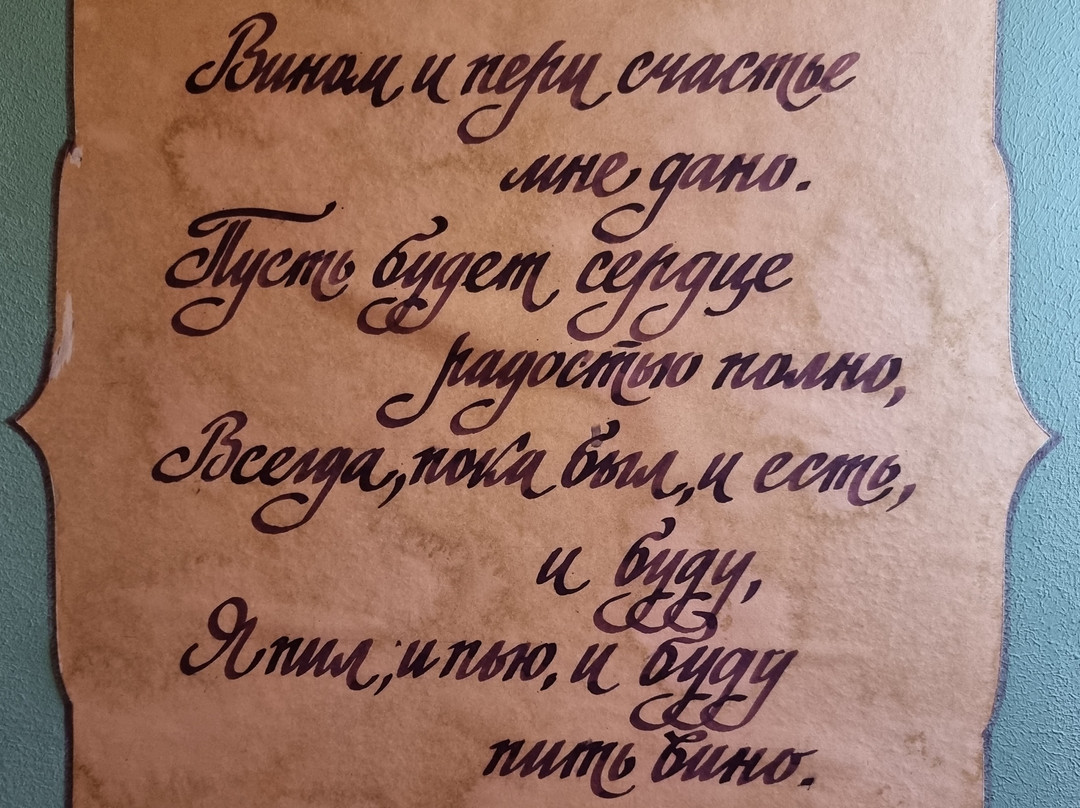 Вином и пери счастье
мне дано.
Пусть будет сердце
радостью полно,
Всегда, пока был, и есть,
и буду,
Я пил, и пью, и буду
пить вино.